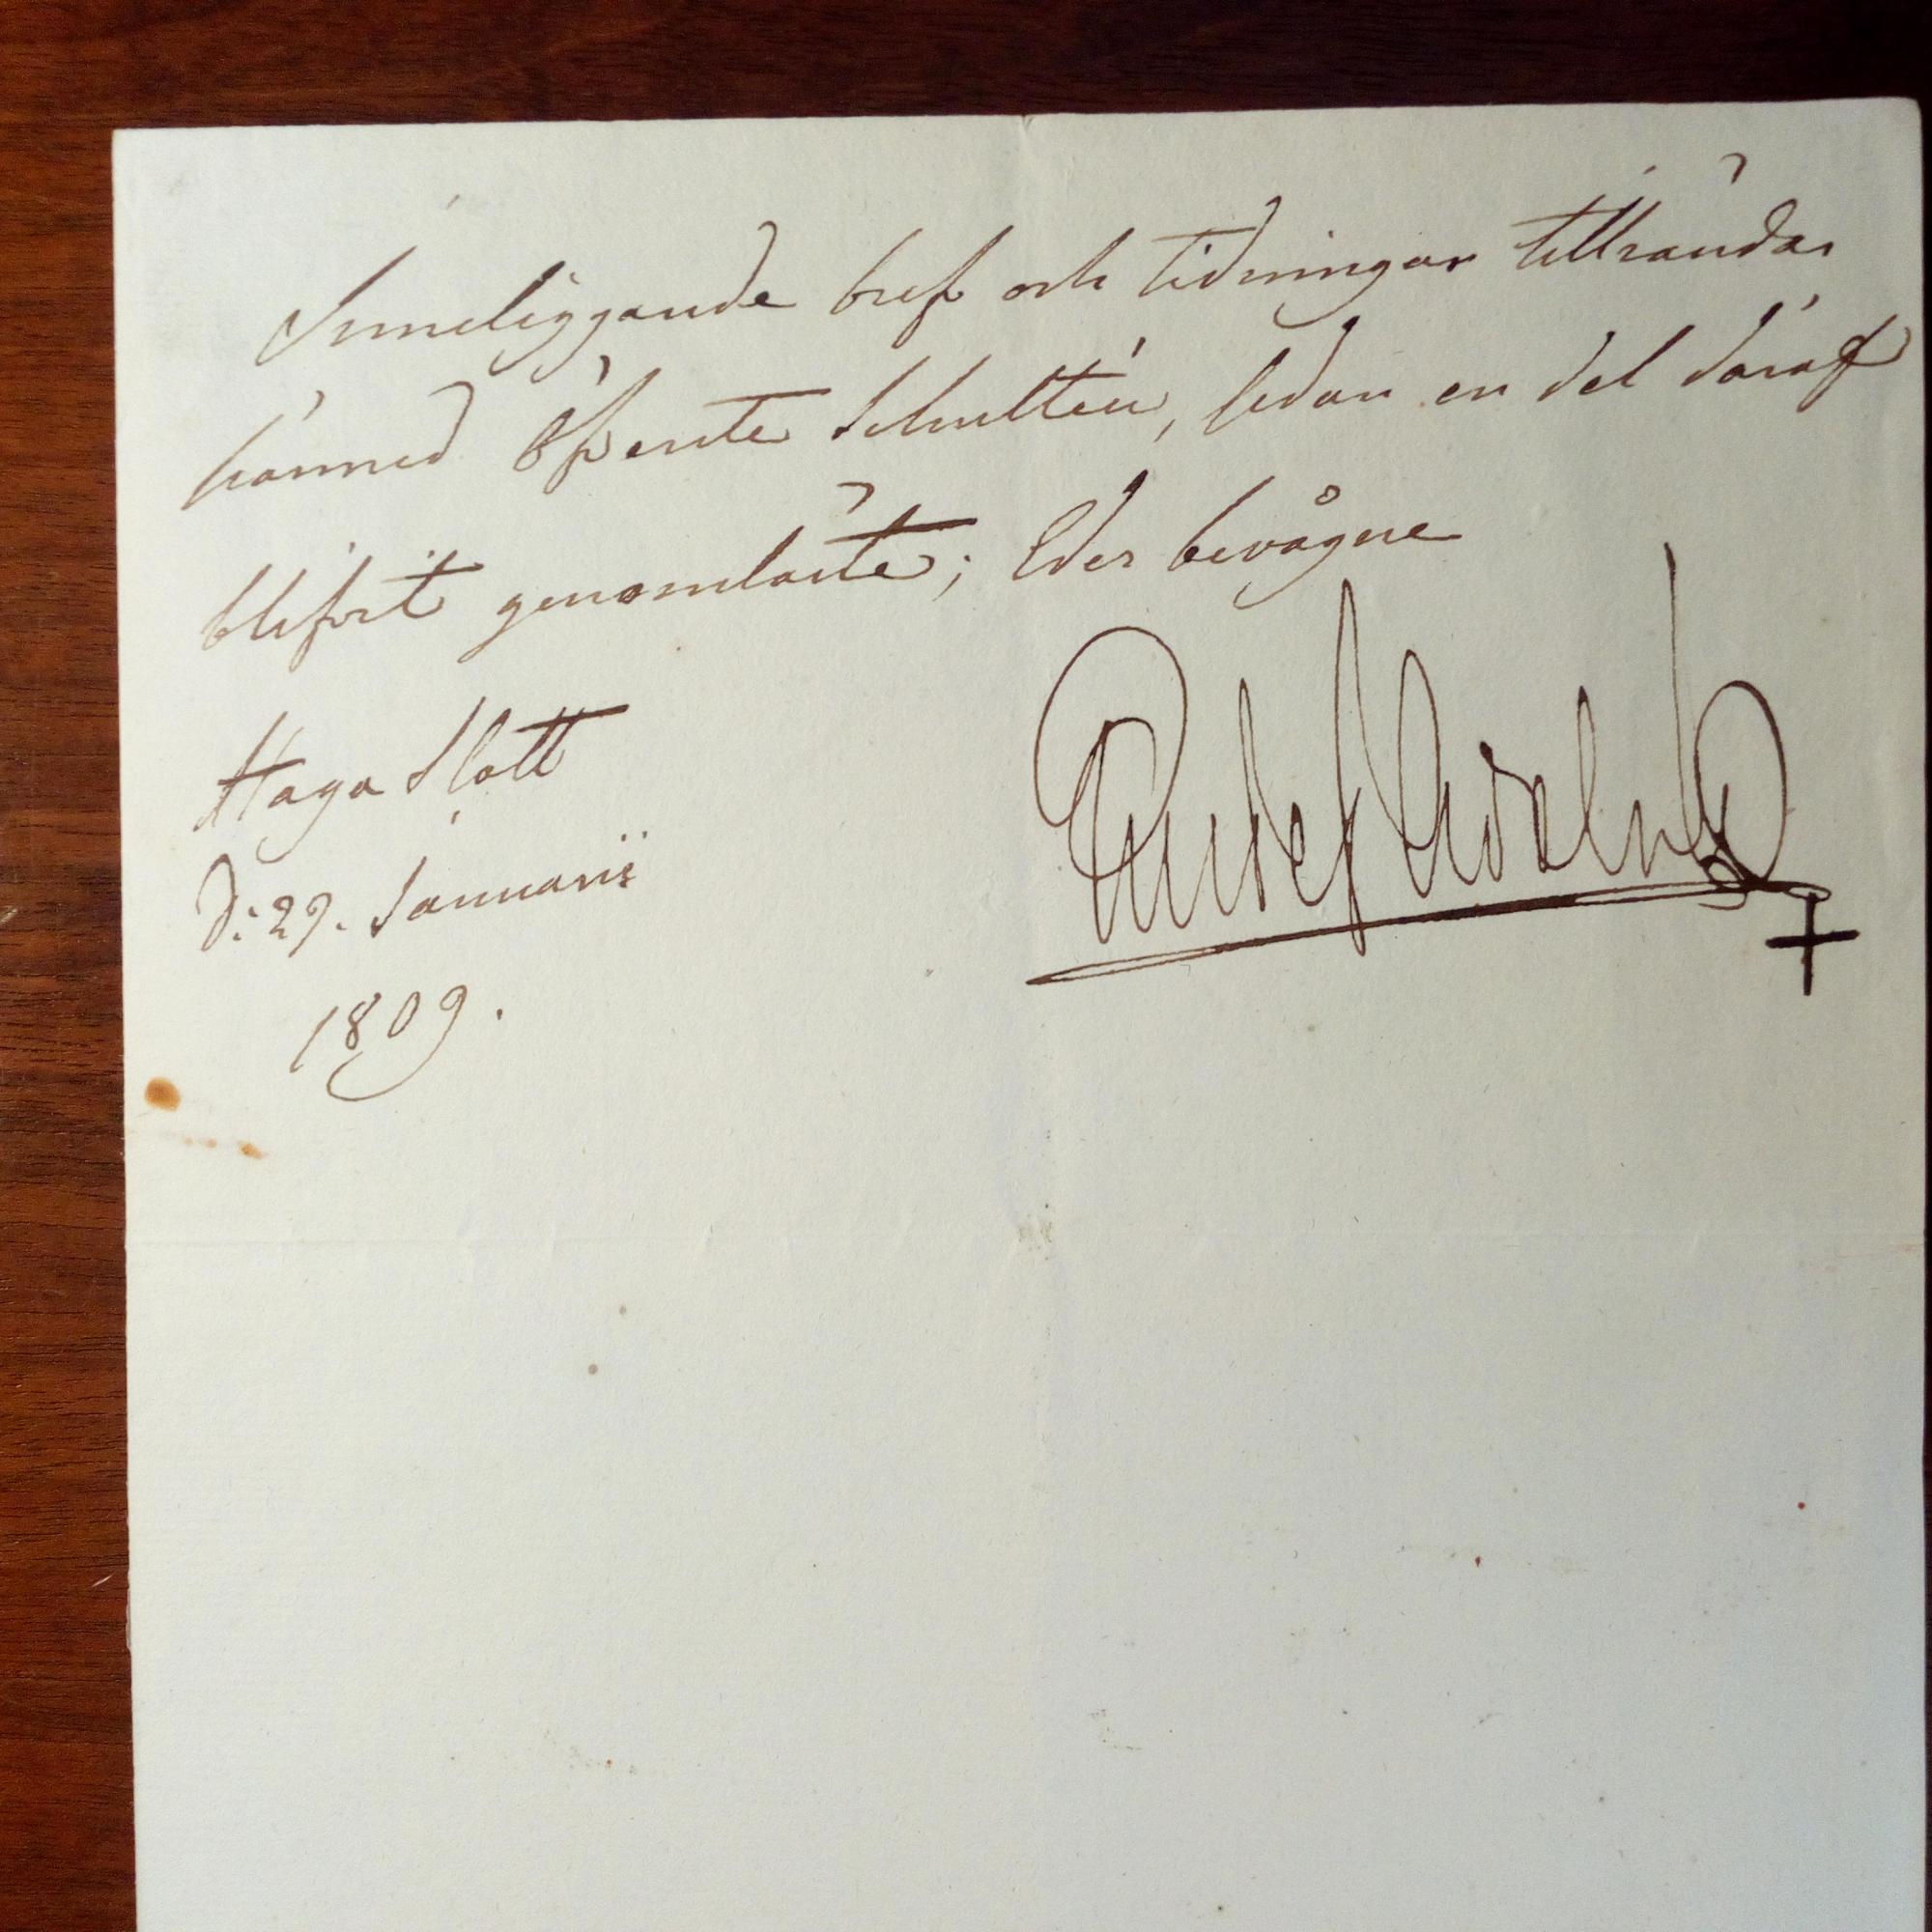 Inneliggande bref och tidningar tillsändas
härmed Öfverste Schultén, sedan en del däraf
blifvit genomläste; Eder bevågne
Gustaf Adolph
Haga Slott
d: 29. Januarii
1809.